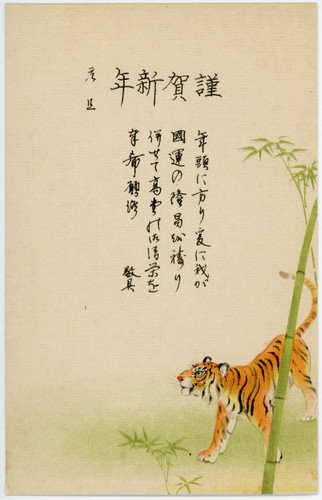 謹賀新年
年頭に方り爰に我が
國運の隆昌を祷り
併せて高堂の御清栄を
奉希願候
敬具
元旦